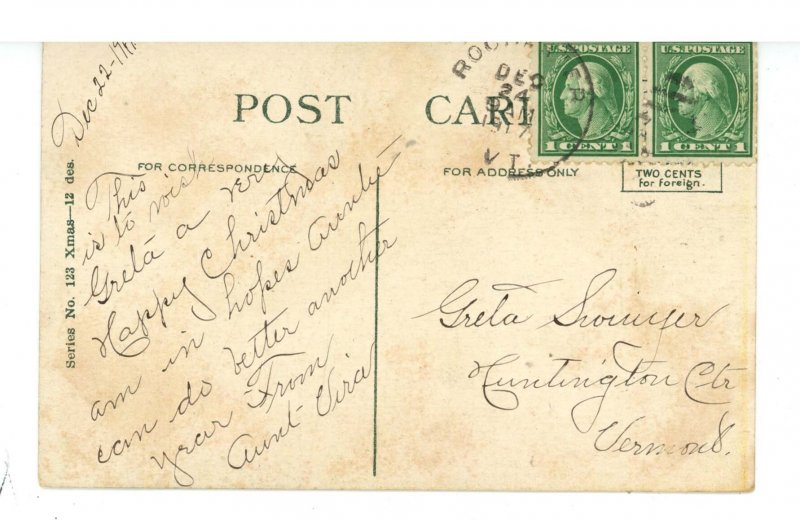 Dec 22-191
POST CAR
ROC
DEC
24
1917
VT.
U.S. POSTAGE
1 CENT 1
U.S. POSTAGE
1 CENT 1
FOR CORRESPONDENCE
FOR ADDRESS ONLY
TWO CENTS
for foreign.
Series No. 123 Xmas—12 des.
This
is to wish
Greta a very
Happy Christmas
am in hopes Aunty
can do better another
year From
Aunt Vira
Greta Swinyer
Huntington Ctr
Vermont.